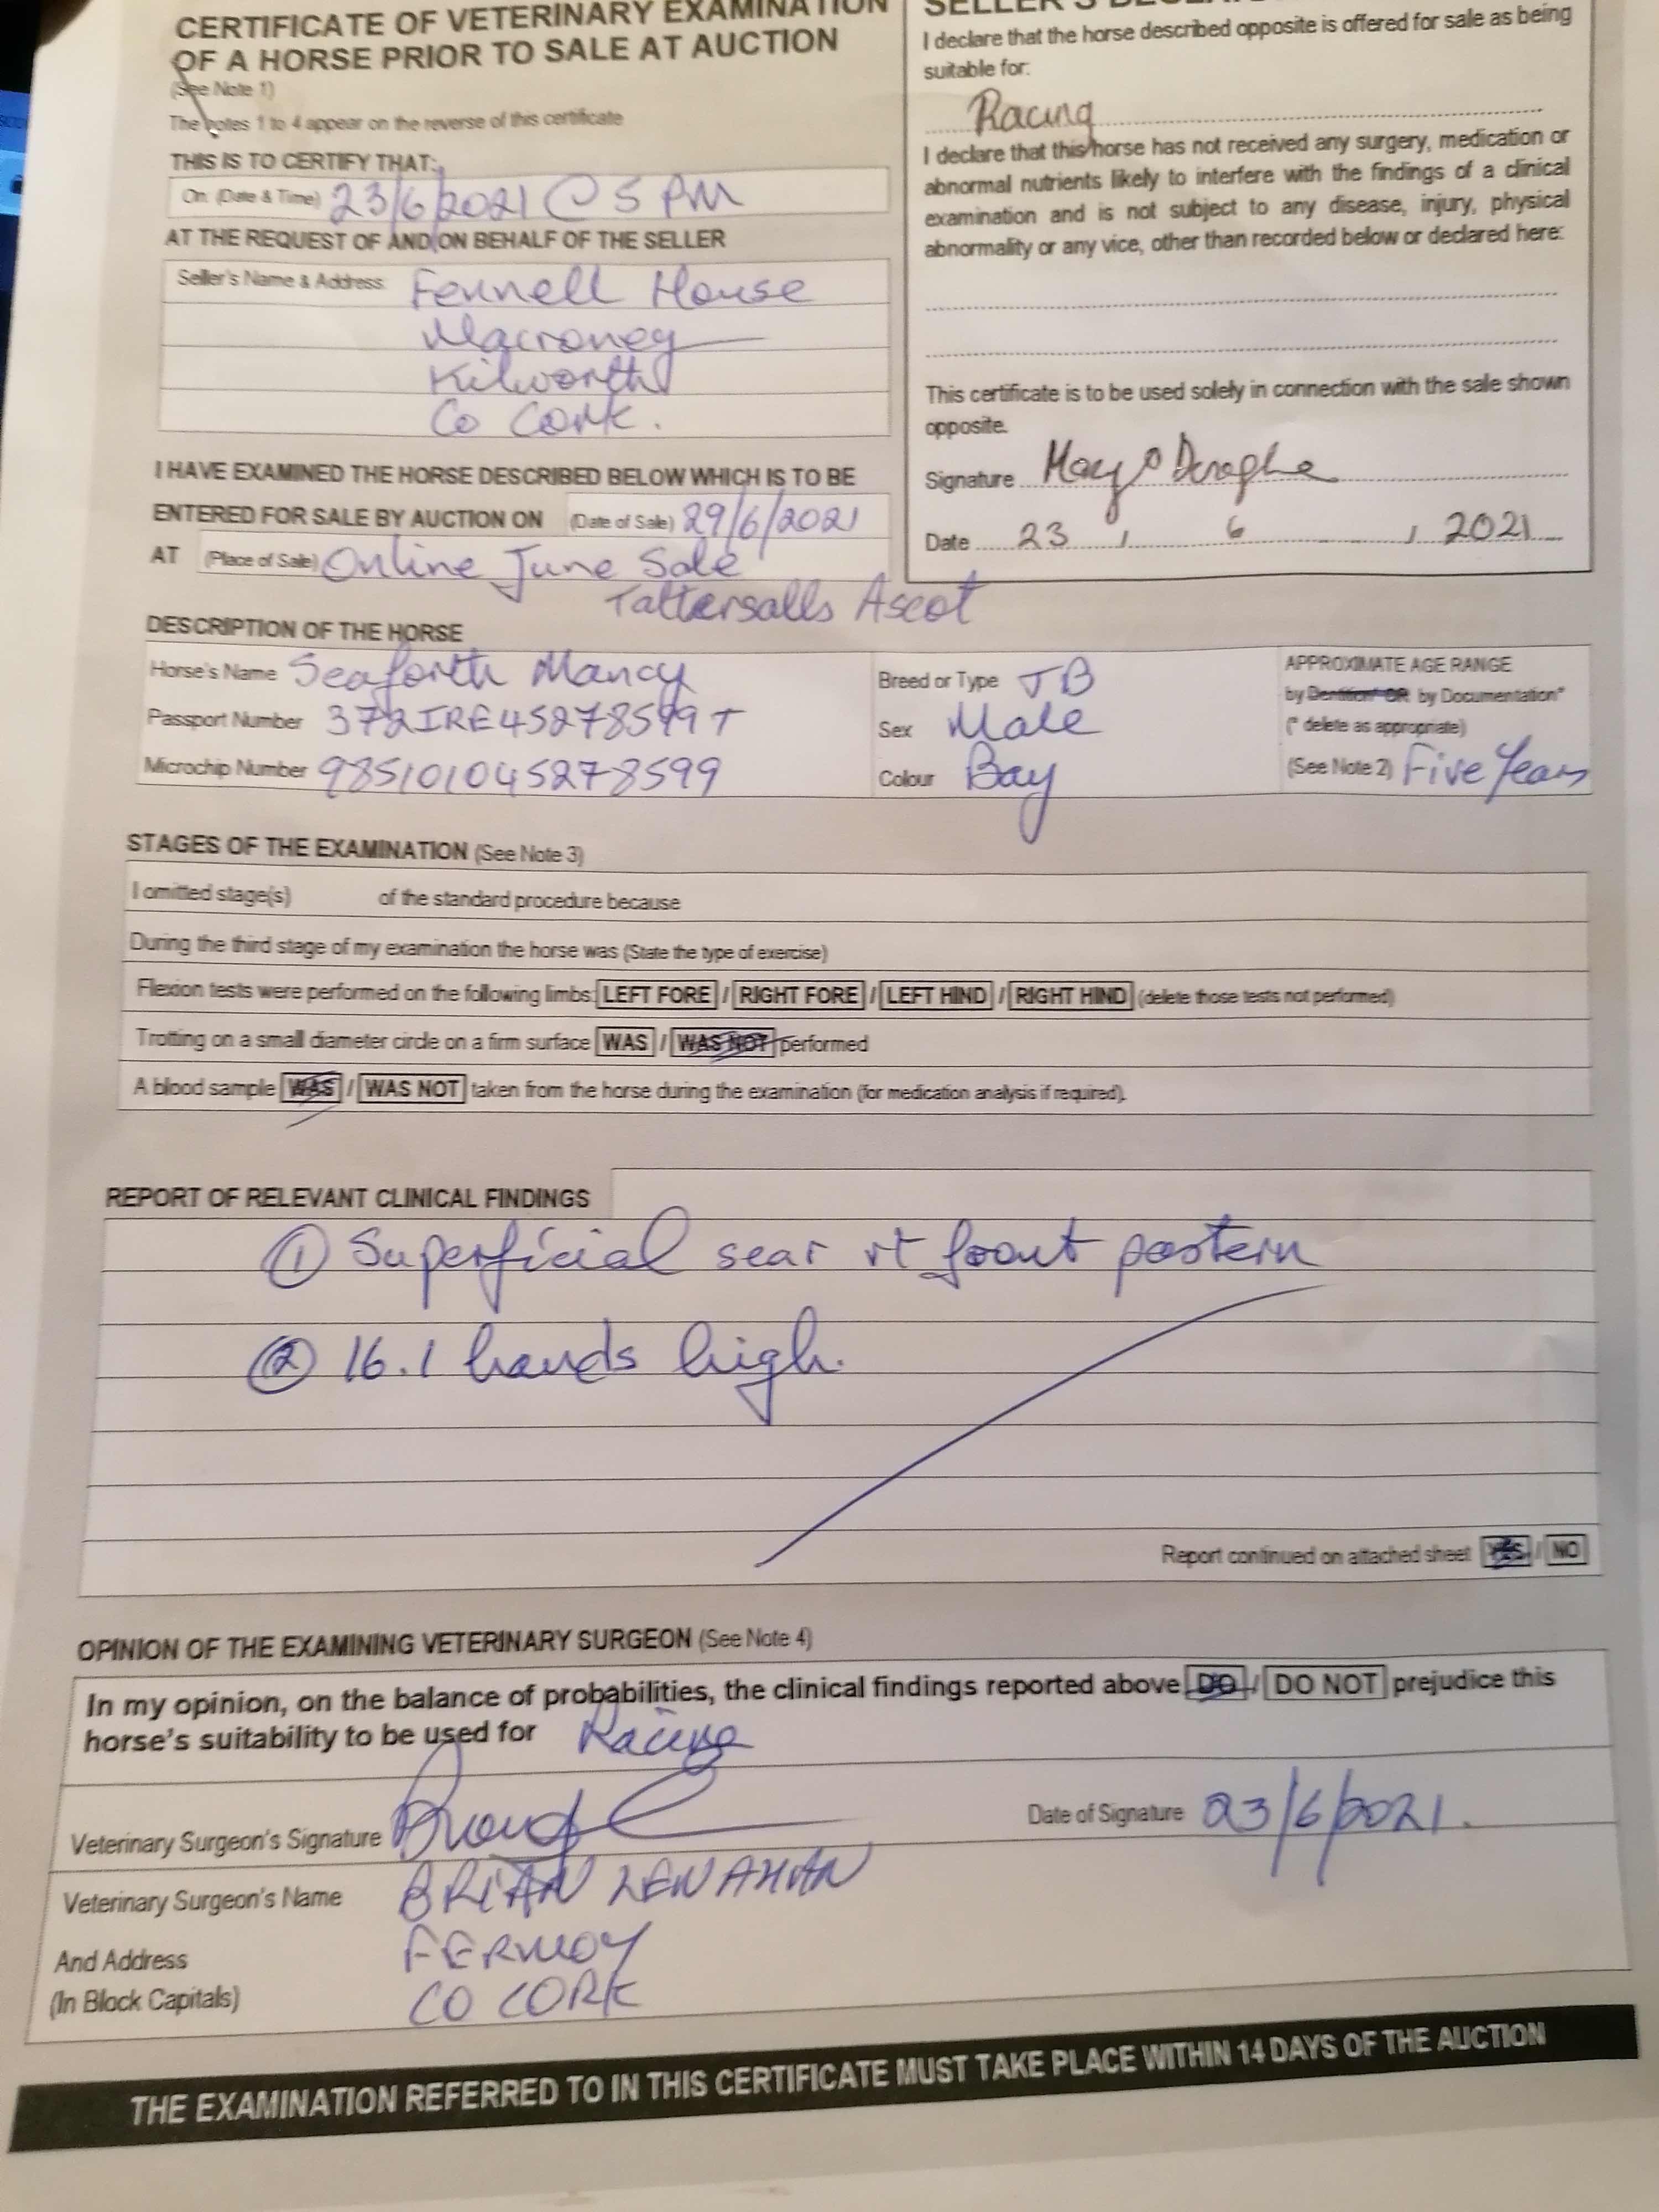 CERTIFICATE OF VETERINARY EXAMINATION
OF A HORSE PRIOR TO SALE AT AUCTION
(See Note 1)
The notes 1 to 4 appear on the reverse of this certificate
THIS IS TO CERTIFY THAT:
On: (Date & Time) 23/6/2021 @ 5 PM
AT THE REQUEST OF AND ON BEHALF OF THE SELLER
Seller's Name & Address: Fennell House
Macroney
Kilworth
Co Cork.
I HAVE EXAMINED THE HORSE DESCRIBED BELOW WHICH IS TO BE
ENTERED FOR SALE BY AUCTION ON (Date of Sale) 29/6/2021
AT (Place of Sale) Online June Sale
Tattersalls Ascot
SELLER'S
I declare that the horse described opposite is offered for sale as being
suitable for:
Racing
I declare that this horse has not received any surgery, medication or
abnormal nutrients likely to interfere with the findings of a clinical
examination and is not subject to any disease, injury, physical
abnormality or any vice, other than recorded below or declared here:
This certificate is to be used solely in connection with the sale shown
opposite.
Signature Mary O Donoghue
Date 23 , 6 , 2021
DESCRIPTION OF THE HORSE
Horse's Name Seaforth Mancy
Passport Number 372IRE45278599T
Microchip Number 985101045278599
Breed or Type TB
Sex Male
Colour Bay
APPROXIMATE AGE RANGE
by Dentition* OR by Documentation*
(* delete as appropriate)
(See Note 2) Five Years
STAGES OF THE EXAMINATION (See Note 3)
I omitted stage(s) of the standard procedure because
During the third stage of my examination the horse was (State the type of exercise)
Flexion tests were performed on the following limbs: LEFT FORE / RIGHT FORE / LEFT HIND / RIGHT HIND (delete those tests not performed)
Trotting on a small diameter circle on a firm surface WAS / WAS NOT performed
A blood sample WAS / WAS NOT taken from the horse during the examination (for medication analysis if required).
REPORT OF RELEVANT CLINICAL FINDINGS
① Superficial scar rt front pastern
② 16.1 hands high.
Report continued on attached sheet YES / NO
OPINION OF THE EXAMINING VETERINARY SURGEON (See Note 4)
In my opinion, on the balance of probabilities, the clinical findings reported above DO / DO NOT prejudice this
horse's suitability to be used for Racing
Veterinary Surgeon's Signature
Date of Signature 23/6/2021.
Veterinary Surgeon's Name BRIAN LENAHAN
And Address FERMOY
(In Block Capitals) CO CORK
THE EXAMINATION REFERRED TO IN THIS CERTIFICATE MUST TAKE PLACE WITHIN 14 DAYS OF THE AUCTION